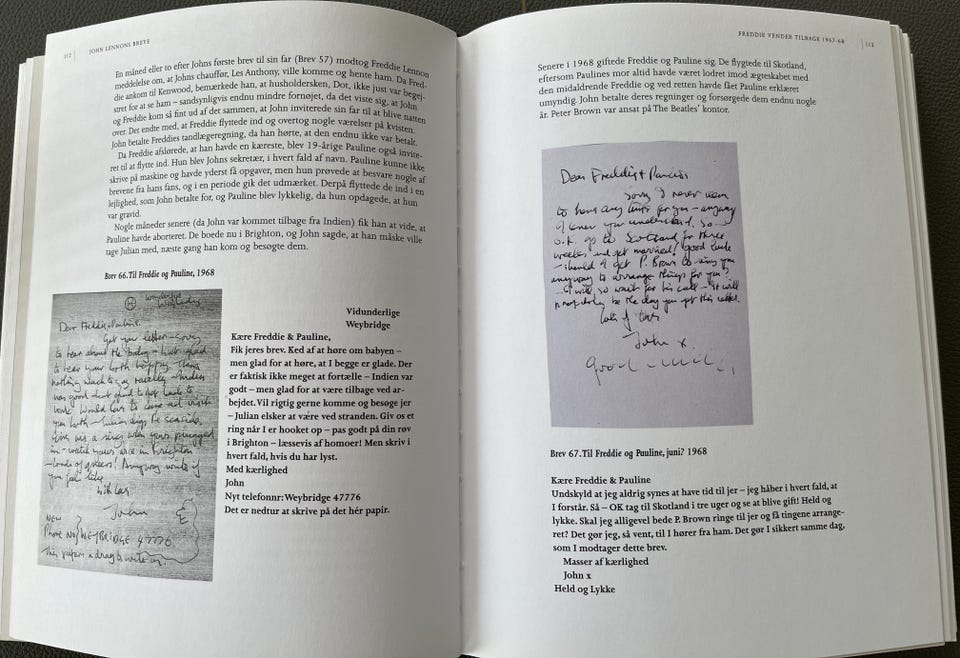 112 | JOHN LENNONS BREVE
En måned eller to efter Johns første brev til sin far (Brev 57) modtog Freddie Lennon
meddelelse om, at Johns chauffør, Les Anthony, ville komme og hente ham. Da Fred-
die ankom til Kenwood, bemærkede han, at husholdersken, Dot, ikke just var begej-
stret for at se ham – sandsynligvis endnu mindre fornøjet, da det viste sig, at John
og Freddie kom så fint ud af det sammen, at John inviterede sin far til at blive natten
over. Det endte med, at Freddie flyttede ind og overtog nogle værelser på kvisten.
John betalte Freddies tandlægeregning, da han hørte, at den endnu ikke var betalt.
Da Freddie afslørede, at han havde en kæreste, blev 19-årige Pauline også invite-
ret til at flytte ind. Hun blev Johns sekretær, i hvert fald af navn. Pauline kunne ikke
skrive på maskine og havde yderst få opgaver, men hun prøvede at besvare nogle af
brevene fra hans fans, og i en periode gik det udmærket. Derpå flyttede de ind i en
lejlighed, som John betalte for, og Pauline blev lykkelig, da hun opdagede, at hun
var gravid.
Nogle måneder senere (da John var kommet tilbage fra Indien) fik han at vide, at
Pauline havde aborteret. De boede nu i Brighton, og John sagde, at han måske ville
tage Julian med, næste gang han kom og besøgte dem.
Brev 66. Til Freddie og Pauline, 1968
wonderful
Weybridge
Dear Freddie & Pauline,
Got your letter – sorry
to hear about the baby – but glad
to hear your both happy. Theres
nothing much to say really – Indian
was good – but glad to get back to
work. Would love to come and visit
you both – Julian digs the seaside.
Give us a ring when your plugged
in – watch your arse in Brighton
– loads of queers! Anyway write if
you feel like.
with love
John
NEW
Phone No/WEYBRIDGE 47776
This paper's a drag to write on.
Vidunderlige
Weybridge
Kære Freddie & Pauline,
Fik jeres brev. Ked af at høre om babyen –
men glad for at høre, at I begge er glade. Der
er faktisk ikke meget at fortælle – Indien var
godt – men glad for at være tilbage ved ar-
bejdet. Vil rigtig gerne komme og besøge jer
– Julian elsker at være ved stranden. Giv os et
ring når I er hooket op – pas godt på din røv
i Brighton – læssevis af homoer! Men skriv i
hvert fald, hvis du har lyst.
Med kærlighed
John
Nyt telefonnr: Weybridge 47776
Det er nedtur at skrive på det hér papir.
FREDDIE VENDER TILBAGE 1967-68 | 113
Senere i 1968 giftede Freddie og Pauline sig. De flygtede til Skotland,
eftersom Paulines mor altid havde været lodret imod ægteskabet med
den midaldrende Freddie og ved retten havde fået Pauline erklæret
umyndig. John betalte deres regninger og forsørgede dem endnu nogle
år. Peter Brown var ansat på The Beatles' kontor.
Dear Freddie & Pauline
sorry I never seem
to have any time for you – anyway
I hope you understand. So –
O.K. go to Scotland for three
weeks and get married! Good luck
– should I get P. Brown to ring you
anyway to arrange things for you?
– I will, so wait for his call – it will
probably be the day you get this letter.
Lots of love
John x.
Good luck
Brev 67. Til Freddie og Pauline, juni? 1968
Kære Freddie & Pauline
Undskyld at jeg aldrig synes at have tid til jer – jeg håber i hvert fald, at
I forstår. Så – OK tag til Skotland i tre uger og se at blive gift! Held og
lykke. Skal jeg alligevel bede P. Brown ringe til jer og få tingene arrange-
ret? Det gør jeg, så vent, til I hører fra ham. Det gør I sikkert samme dag,
som I modtager dette brev.
Masser af kærlighed
John x
Held og Lykke